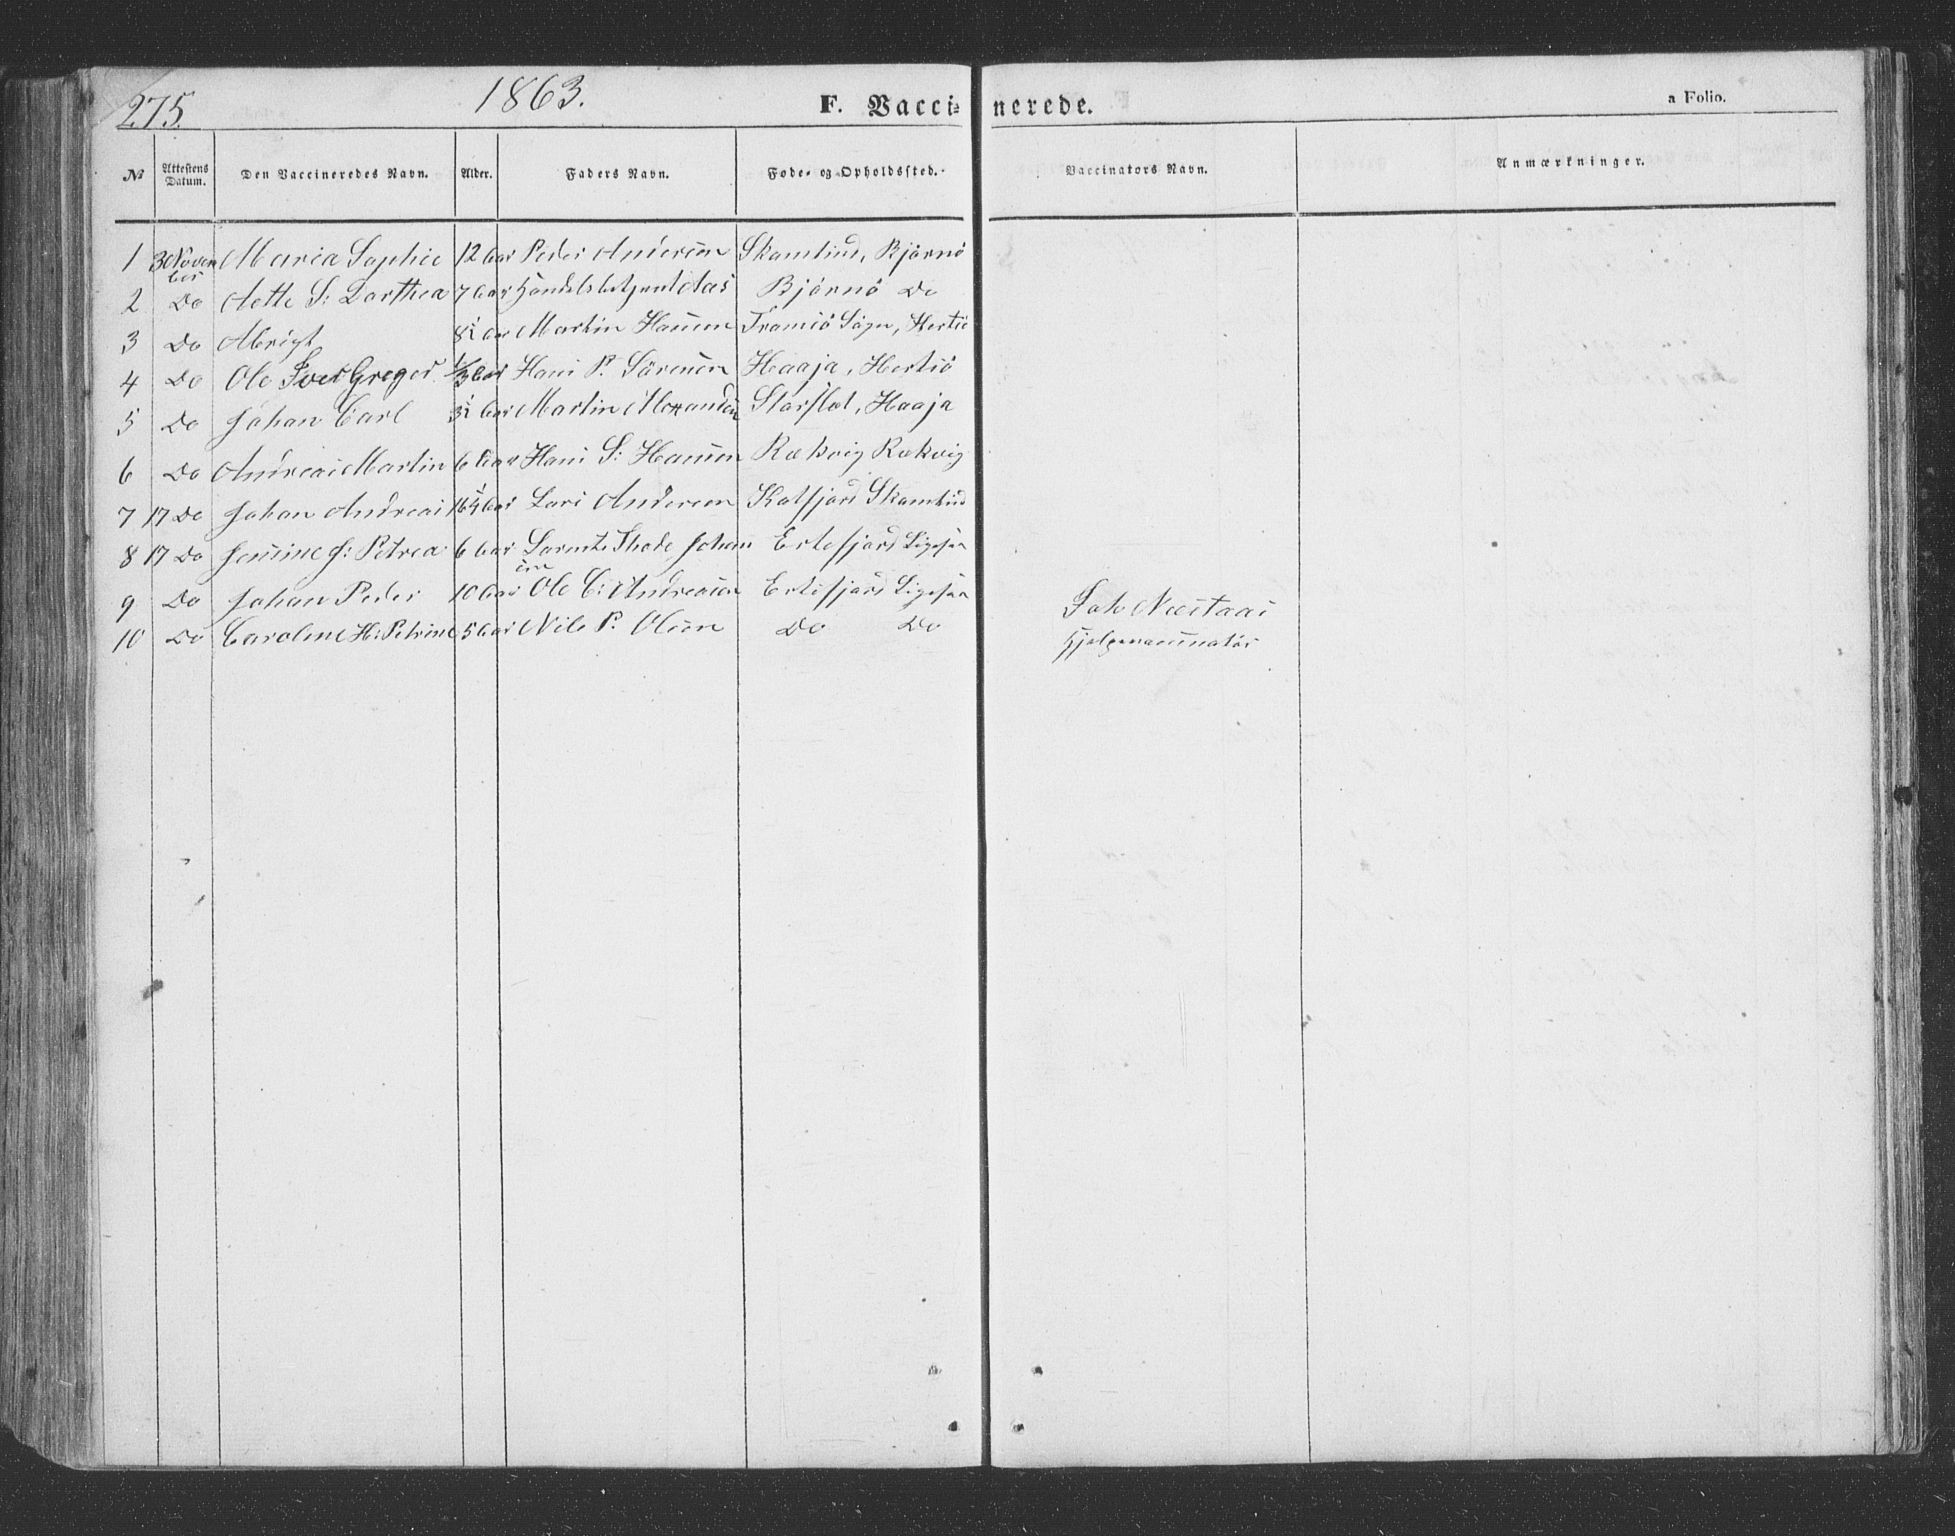 275.
1863.
F. Vacci= nerede.
a Folio.
No Attestens Datum. Den Vaccineredes Navn. Alder. Faders Navn. Føde- og Opholdssted. Vaccinators Navn. Anmærkninger.
1 3 Novem ber Maria Sophie 12 Aar Peder Andersen Skamtind, Bjørnø
2 Do S: Dorthea 7 Aar Bjørnø Do
3 Do Albrigt Aar Martin Hansen Tromsø Sogn, Hersø
4 Do Ole Greger Aar Hans P. Sörensen Haaja, Hersø
5 Do Johan Carl Aar Martin Storslet, Haaja
6 Do Andreas Martin 6 Aar Hans S: Hansen Rækvig Rækvig
7 17 Do Johan Andreas Aar Lars Andersen Katfjord Skamtind
8 17 Do Jensine J: Petrea 6 Aar Johan sen
9 Do Johan Peder 10 Aar Ole C: Andreasen
10 Do Caroline H: Petrine 5 Aar Nils P. Olsen Do Do
Næstaas
Hjelpevaccinatør